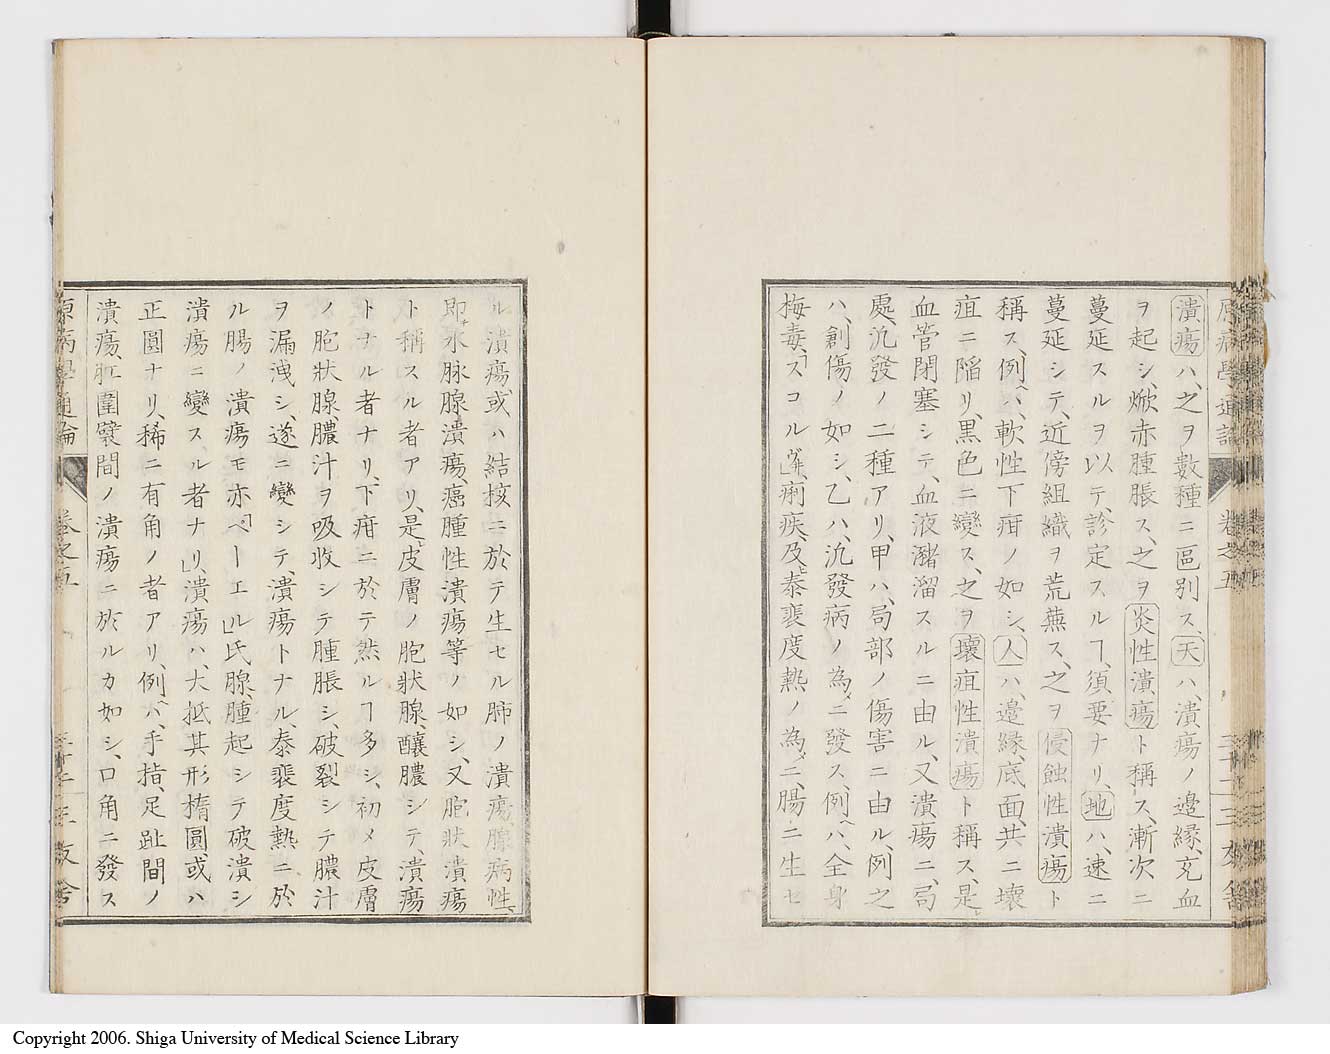 原病學通論 卷之五
潰瘍ハ、之ヲ數種ニ區別ス、天ハ、潰瘍ノ邊緣、充血
ヲ起シ、焮赤腫脹ス、之ヲ炎性潰瘍ト稱ス、漸次ニ
蔓延スルヲ以テ、診定スルヿ、須要ナリ、地ハ、速ニ
蔓延シテ、近傍組織ヲ荒蕪ス、之ヲ侵蝕性潰瘍ト
稱ス、例ハ、軟性下疳ノ如シ、人ハ、邊緣、底面、共ニ壞
疽ニ陷リ、黑色ニ變ス、之ヲ壞疽性潰瘍ト稱ス、是
血管閉塞シテ、血液瀦溜スルニ由ル、又潰瘍ニ、局
處、汎發ノ二種アリ、甲ハ、局部ノ傷害ニ由ル、例之
ハ、創傷ノ如シ、乙ハ、汎發病ノ為メニ發ス、例ハ、全身
梅毒、「スコルヴ井」痢疾、及ヒ泰裴度熱ノ為メニ、腸ニ生セ
ル潰瘍、或ハ結核ニ於テ生セル肺ノ潰瘍、腺病性、
即チ水脉腺潰瘍、癌腫性潰瘍等ノ如シ、又胞狀潰瘍
ト稱スル者アリ、是レ皮膚ノ胞狀腺、釀膿シテ、潰瘍
トナル者ナリ、下疳ニ於テ然ルヿ多シ、初メ皮膚
ノ胞狀腺、膿汁ヲ吸收シテ腫脹シ、破裂シテ膿汁
ヲ漏洩シ、遂ニ變シテ、潰瘍トナル、泰裴度熱ニ於
ル腸ノ潰瘍モ亦「ペーエル」氏腺、腫起シテ破潰シ
潰瘍ニ變スル者ナリ、」潰瘍ハ、大抵其形橢圓或ハ
正圓ナリ、稀ニ有角ノ者アリ、例ハ、手指、足趾間ノ
潰瘍、肛圍襞間ノ潰瘍ニ於ルカ如シ、口角ニ發ス
原病學通論 卷之五 三友舎